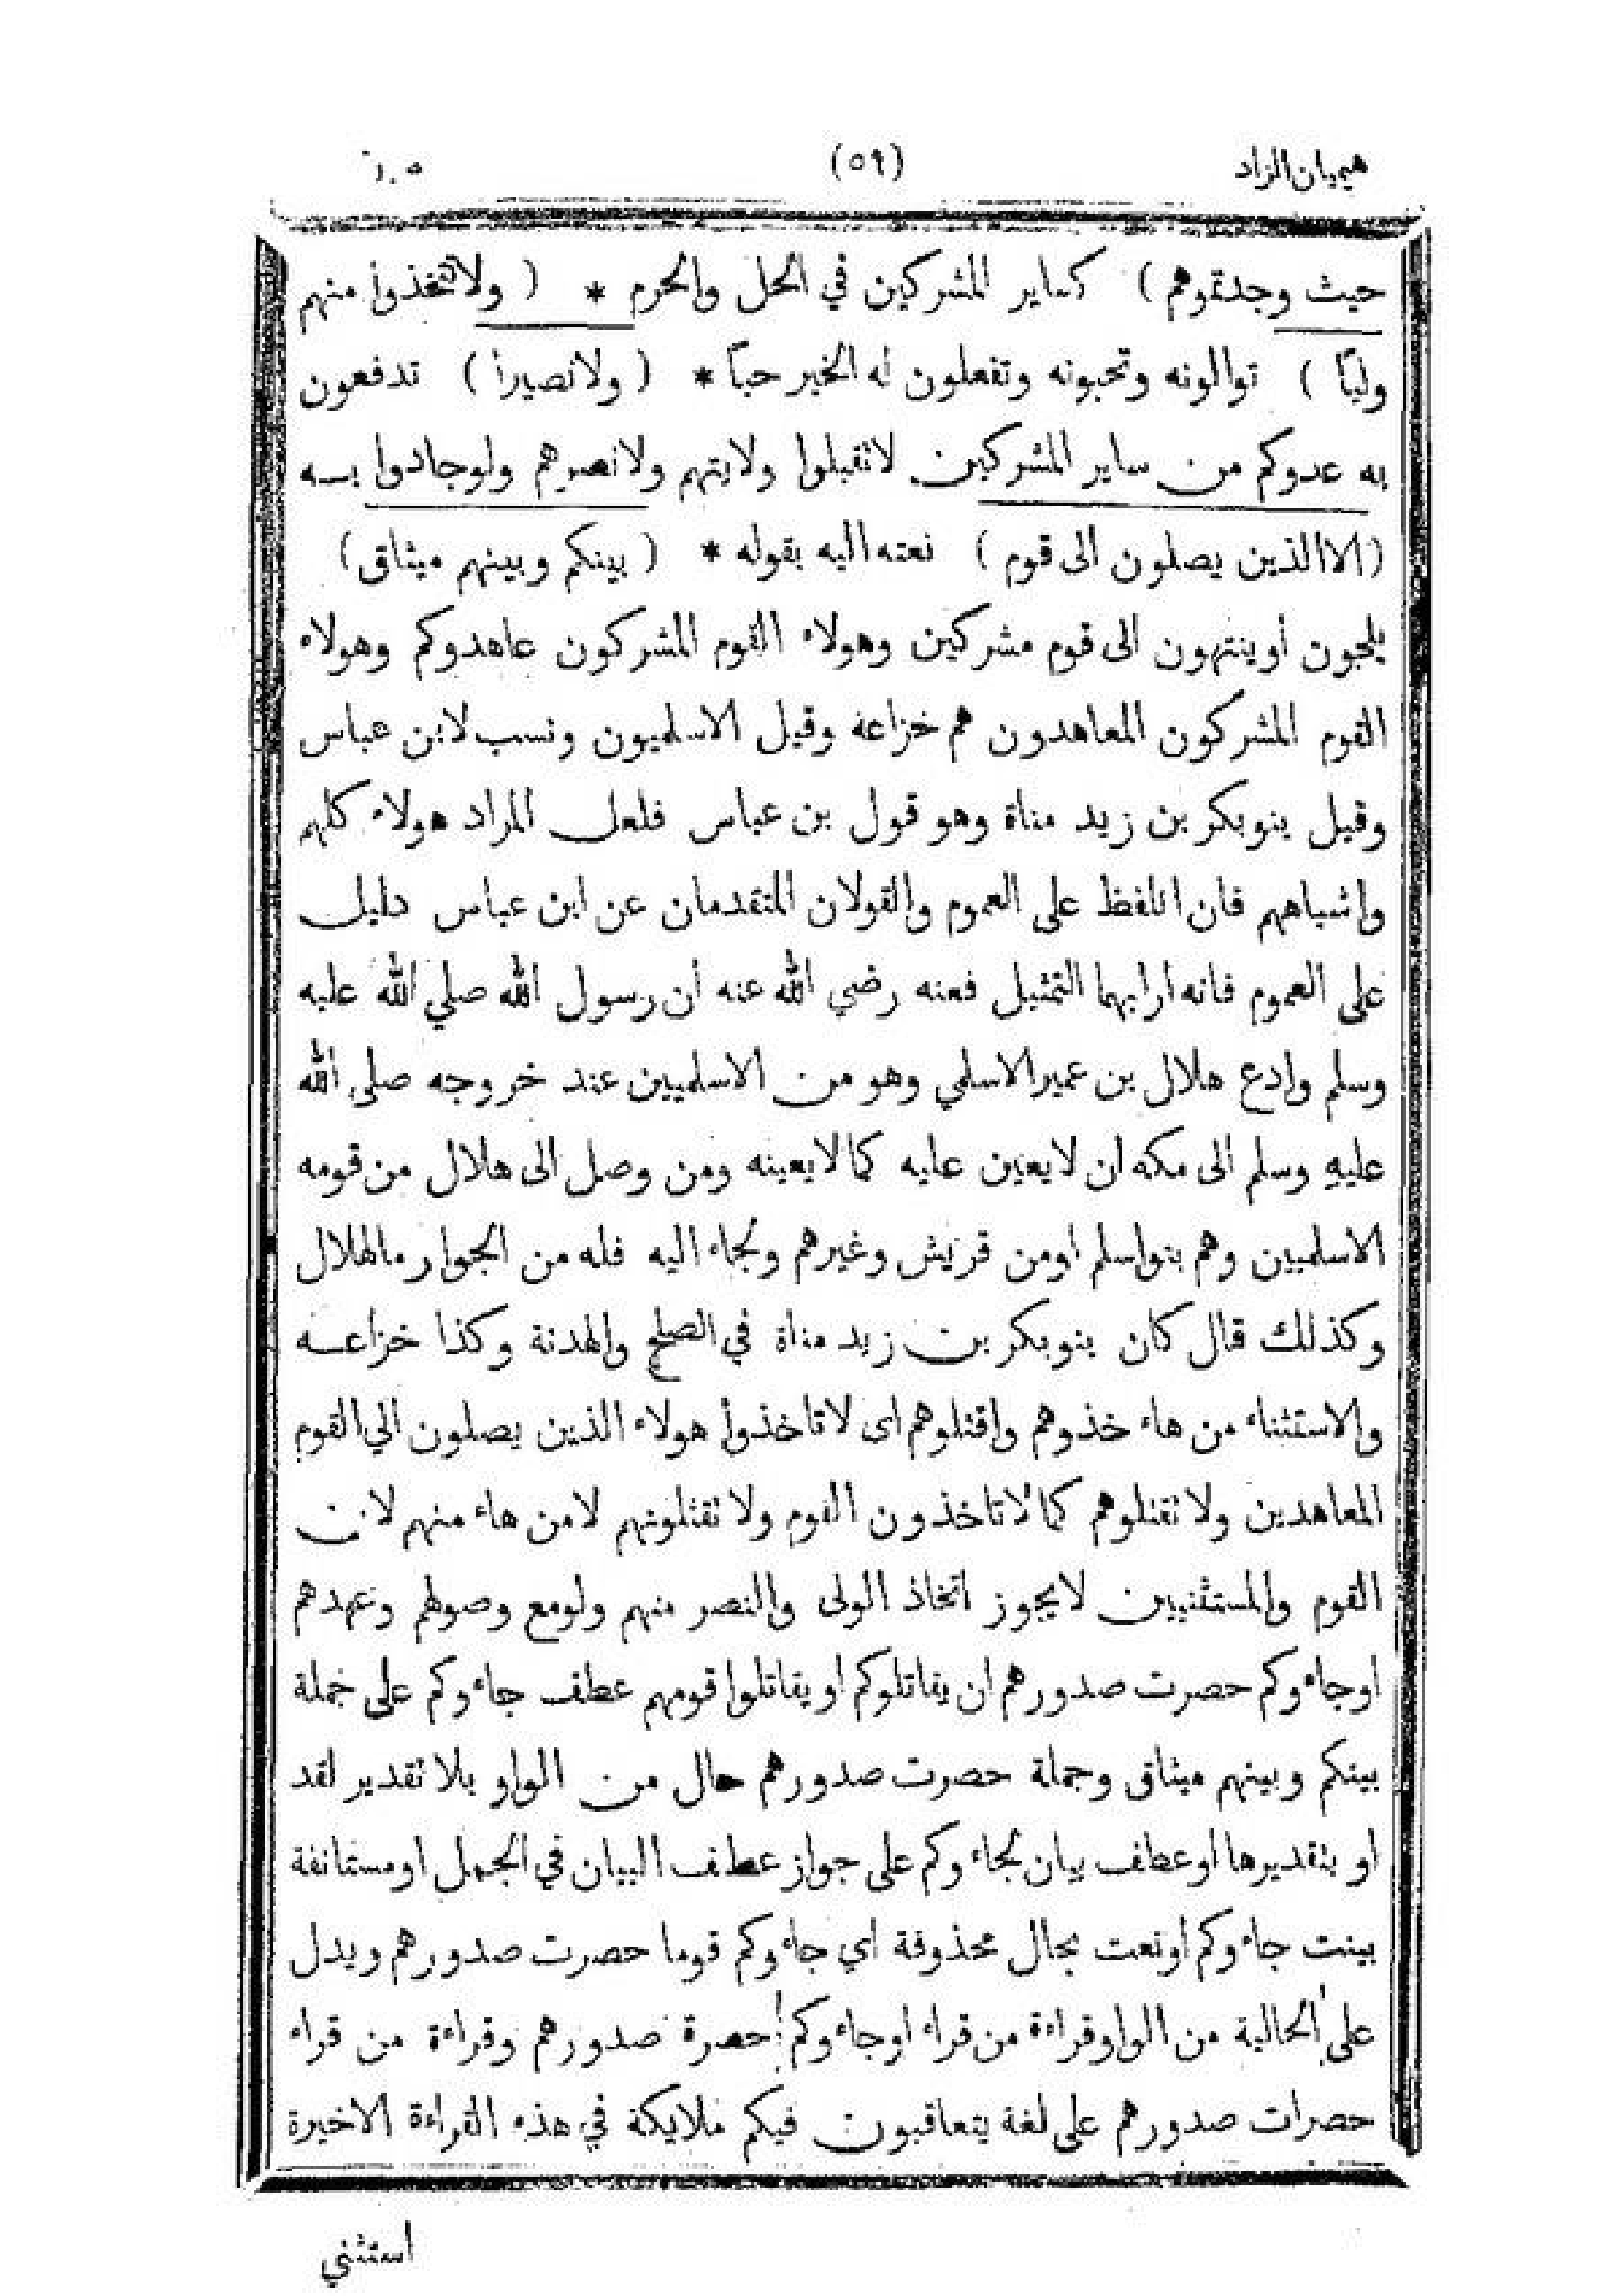 هيميان الزاد (٥٩)
حيث وجدتموهم ) كساير المشركين في الحل والحرم * ( ولا تتخذوا منهم
وليًا ) توالونه وتحبونه وتفعلون له الخير حبًا * ( ولا نصيرا ) تدفعون
به عدوكم من ساير المشركين لا تقبلوا ولايتهم ولا نصرهم ولو جادوا بــه
(الا الذين يصلون الى قوم ) نعته اليه بقوله * ( بينكم وبينهم ميثاق)
يلجون أو ينتهون الى قوم مشركين وهولاء القوم المشركون عاهدوكم وهولاء
القوم المشركون المعاهدون هم خزاعة وقيل الاسلميون ونسب لابن عباس
وقيل بنو بكر بن زيد مناة وهو قول بن عباس فلعل المراد هولاء كلهم
واشباههم فان اللفظ على العموم والقولان المتقدمان عن ابن عباس دليل
على العموم فانه اراد بهما التمثيل فعنه رضي الله عنه أن رسول الله صلي الله عليه
وسلم وادع هلال بن عمير الاسلمي وهو من الاسلميين عند خروجه صلى الله
عليه وسلم الى مكه ان لا يعين عليه كما لا يعينه ومن وصل الى هلال من قومه
الاسلميين وهم بنو اسلم او من قريش وغيرهم ولجاء اليه فله من الجوار ما لهلال
وكذلك قال كان بنو بكر بن زيد مناة في الصلح والهدنة وكذا خزاعــه
والاستثناء من هاء خذوهم واقتلوهم اى لا تاخذوا هولاء الذين يصلون الي القوم
المعاهدين ولا تقتلوهم كما لا تاخذون القوم ولا تقتلونهم لا من هاء منهم لان
القوم والمستثنيين لا يجوز اتخاذ الولى والنصر منهم ولو مع وصولهم وعهدهم
او جاءوكم حصرت صدورهم ان يقاتلوكم او يقاتلوا قومهم عطف جاءوكم على جملة
بينكم وبينهم ميثاق وجملة حصرت صدورهم حال من الواو بلا تقدير لقد
او بتقديرها او عطف بيان لجاءوكم على جواز عطف البيان في الجمل او مستانفة
بينت جاءوكم او نعت بحال محذوفة اي جاءوكم قوما حصرت صدورهم ويدل
على الحالية من الواو قراءة من قراء او جاءوكم حصرة صدورهم وقراءة من قراء
حصرات صدورهم على لغة يتعاقبون فيكم ملايكة في هذه القراءة الاخيرة
استثني